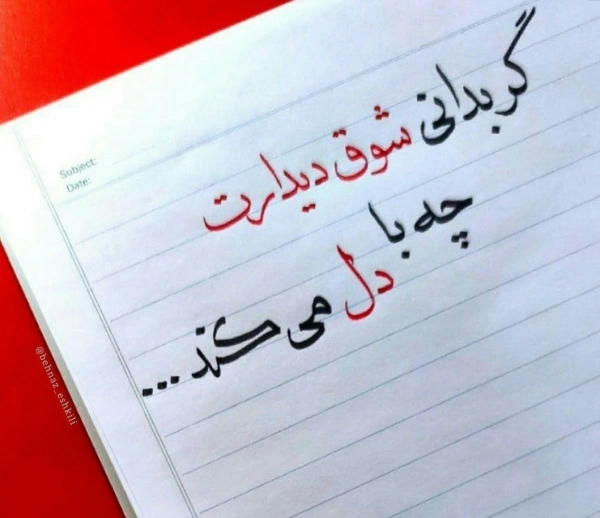 Subject:
Date:
گر بدانی شوق دیدارت
چه با
دل می کند...
@behnaz_eshkili